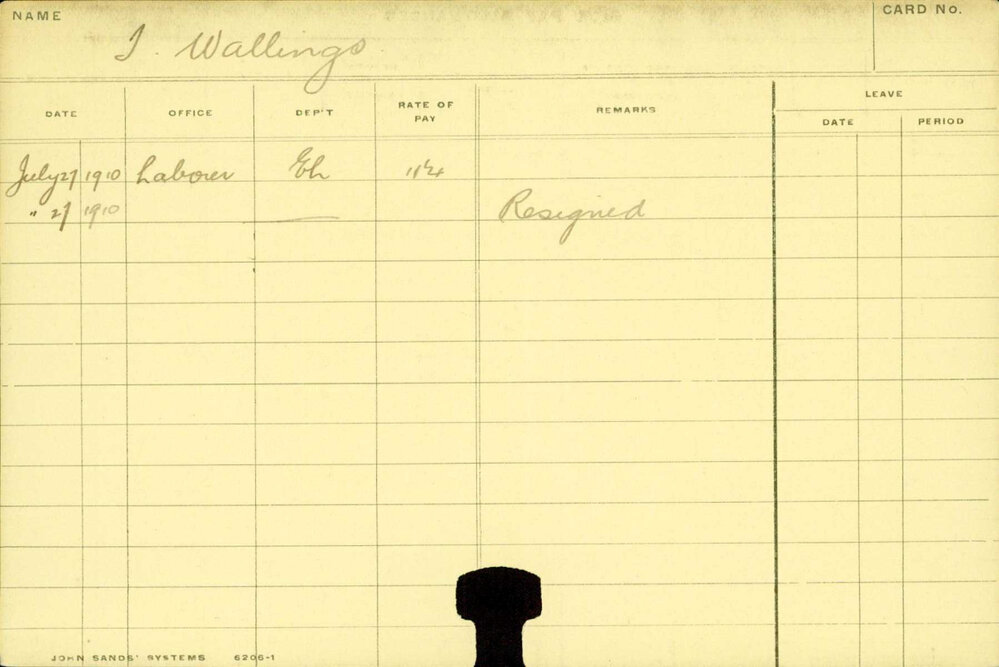 NAME
CARD No.
J. Wallings
DATE OFFICE DEP'T RATE OF PAY REMARKS LEAVE
DATE PERIOD
July 27 1910 Laborer
" 27 1910 Resigned
JOHN SANDS' SYSTEMS 6206-1